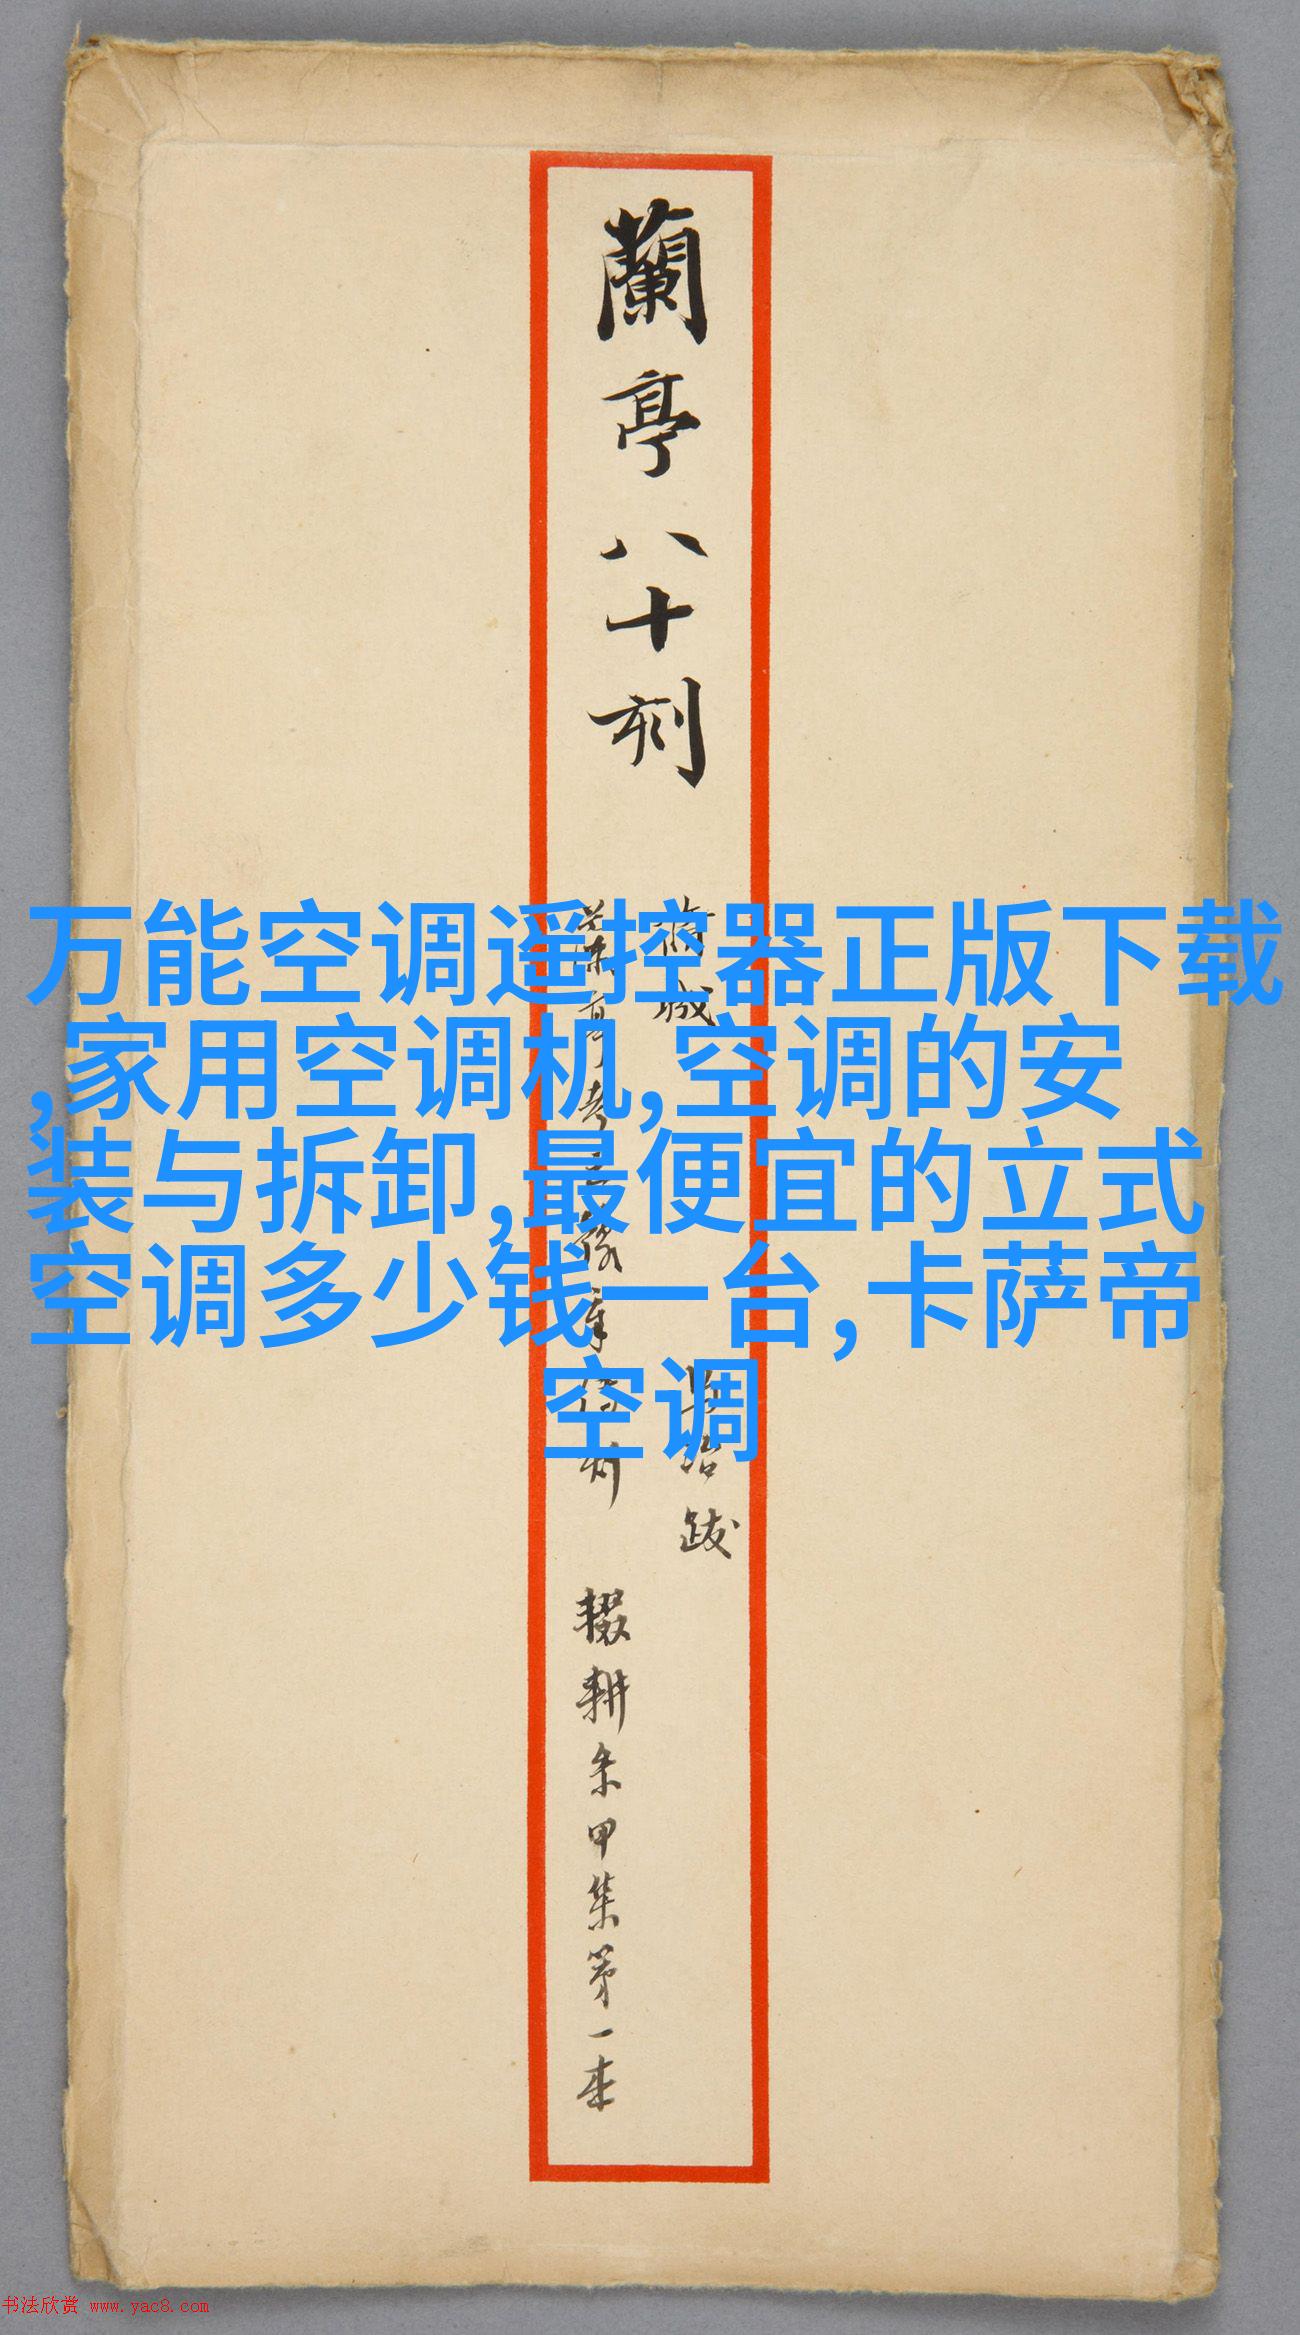 蘭亭八十刻
万能空调遥控器正版下载
,家用空调机,空调的安
装与拆卸,最便宜的立式
空调多少钱一台,卡萨帝
空调
跋
輟耕
甲集第一本
书法欣赏 www.yac8.com